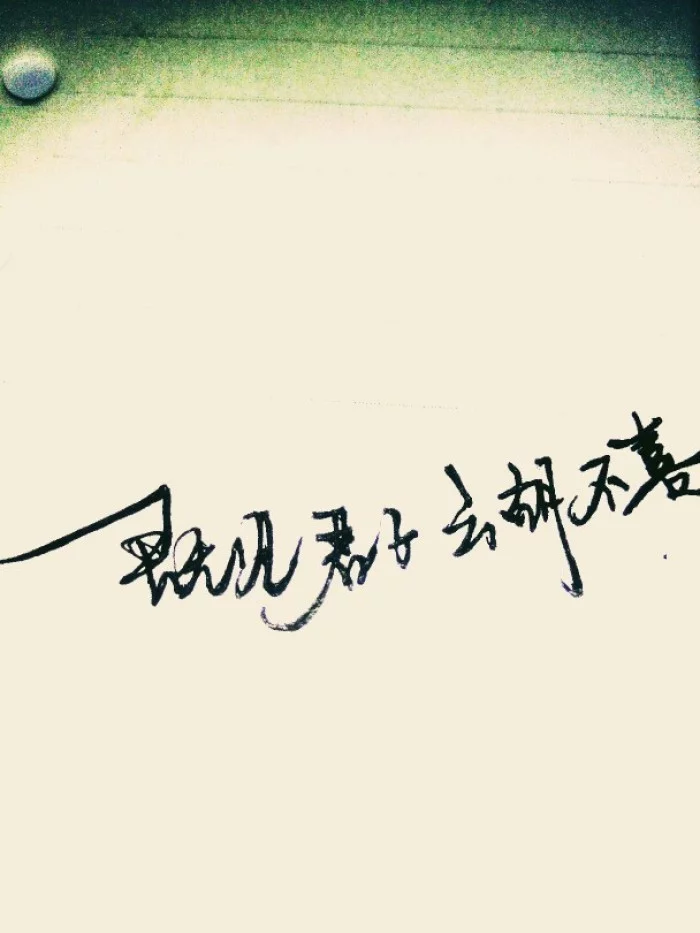 既见君子云胡不喜